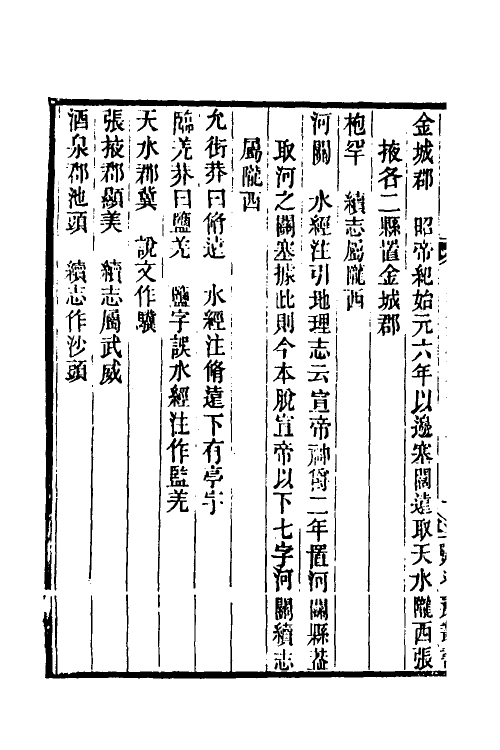 金城郡　昭帝紀始元六年以邊塞闊遠取天水隴西張
掖各二縣置金城郡
枹罕　續志屬隴西
河關　水經注引地理志云宣帝神爵二年置河關縣葢
取河之關塞據此則今本脫宣帝以下七字河關續志
屬隴西
允街莽曰脩遠　水經注脩遠下有亭字
臨羌莽曰鹽羌　鹽字誤水經注作監羌
天水郡冀　說文作驥
張掖郡顯美　續志屬武威
酒泉郡池頭　續志作沙頭